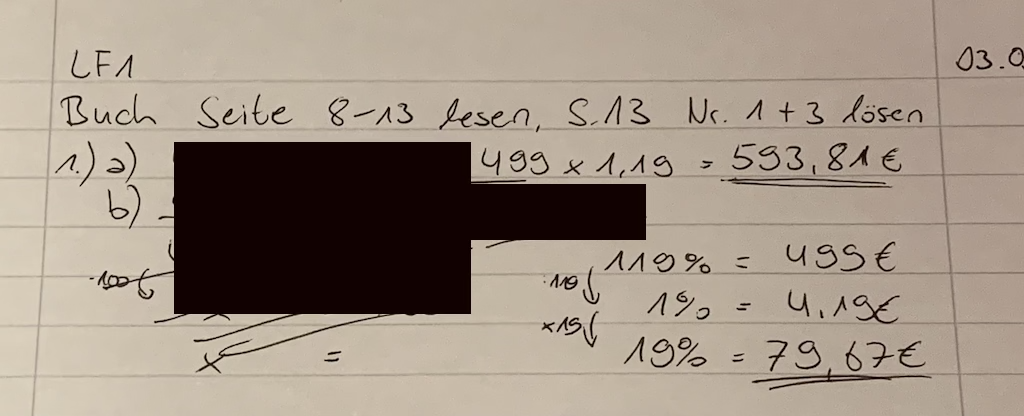 LF1 03.0
Buch Seite 8-13 lesen, S.13 Nr. 1 + 3 lösen
1.) a) 499 x 1,19 = 593,81€
b)
119% = 499€
·100 :119 1% = 4,19€
x19 19% = 79,67€
x =